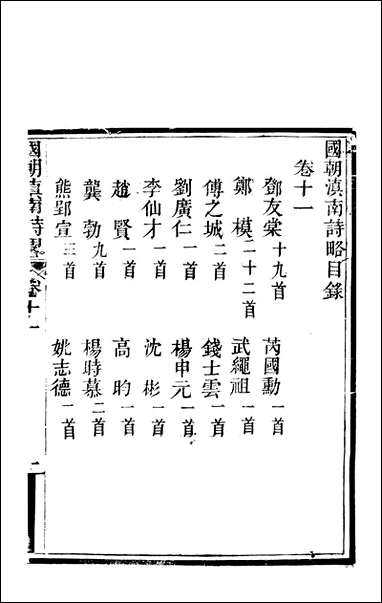 國朝滇南詩略目錄
卷十一
鄧友棠十九首 芮國勳一首
鄭模二十二首 武繩祖一首
傅之城二首 錢士雲一首
劉廣仁一首 楊申元一首
李仙才一首 沈彬一首
趙賢一首 高昀一首
龔勃九首 楊時慕二首
熊郢宣三首 姚志德一首
國朝滇南詩略 卷十一